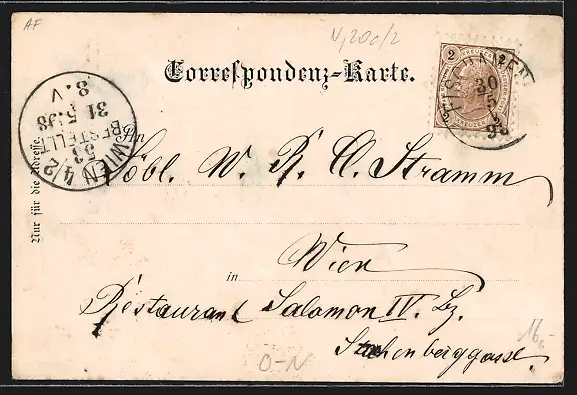 AF
Correspondenz-Karte.
2 2
FISCHAMEND
30
5
98
WIEN 4/2
53
BESTELLT
31 5 98
8. V
Nur für die Adresse.
An
Löbl. W. R. C. Stramm
in Wien
Restaurant Salomon IV. Bz.
O-N